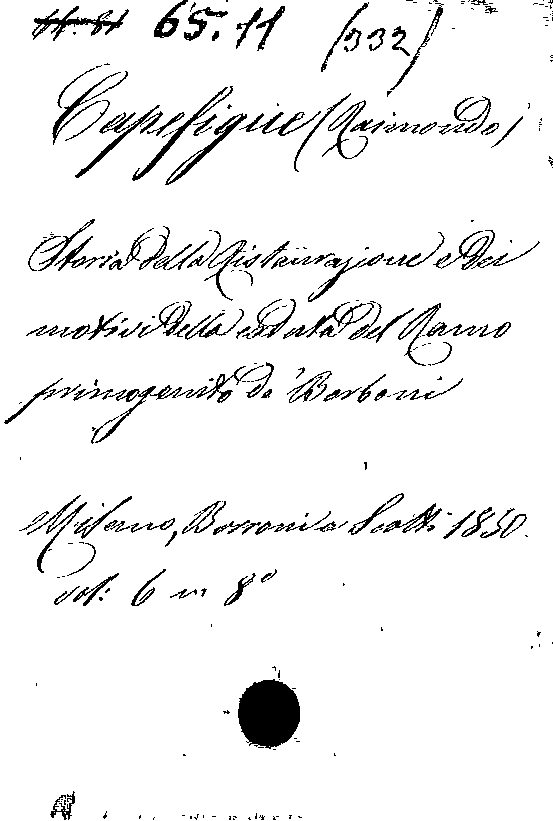 65.11 (332)
Capefigue (Raimondo)
Storia della Ristaurazione e dei
motivi della caduta del Ramo
primogenito de' Borboni
Milano, Borroni e Scotti 1850.
vol: 6 in 8º